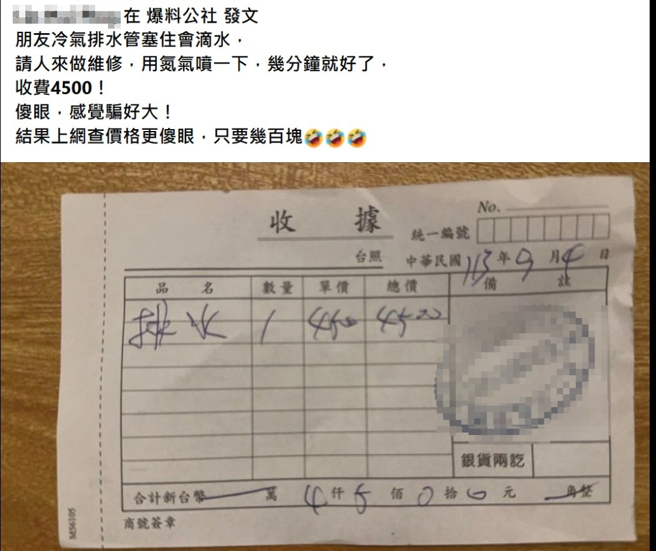 在 爆料公社 發文
朋友冷氣排水管塞住會滴水，
請人來做維修，用氮氣噴一下，幾分鐘就好了，
收費4500！
傻眼，感覺騙好大！
結果上網查價格更傻眼，只要幾百塊🤣🤣🤣
收 據
No.
統一編號
台照
中華民國 113 年 9 月 4 日
品 名 數量 單價 總價 備 註
排水 1 4500 4500
銀貨兩訖
合計新台幣 萬 4 仟 5 佰 0 拾 0 元 角整
商號簽章
SE56105